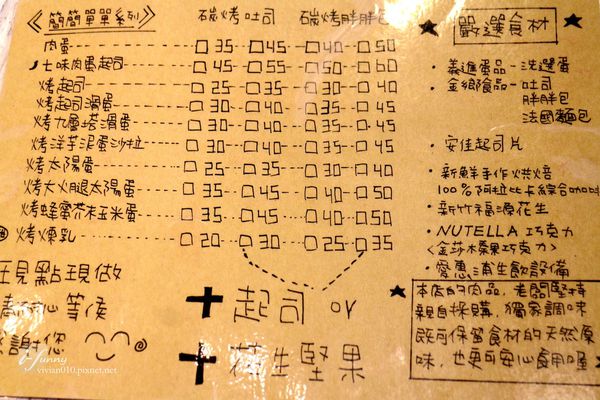 《簡簡單單系列》 碳烤吐司 碳烤胖胖包
肉蛋 □35 □45 □40 □50
七味肉蛋起司 □45 □55 □50 □60
烤起司 □25 □35 □30 □40
烤起司滑蛋 □30 □40 □35 □45
烤九層塔滑蛋 □30 □40 □35 □45
烤洋芋泥蛋沙拉 □30 □40 □35 □45
烤太陽蛋 □25 □35 □30 □40
烤火腿太陽蛋 □35 □45 □40 □50
烤蜂蜜芥末玉米蛋 □35 □45 □40 □50
烤煉乳 □20 □30 □25 □35
+起司 or
+花生堅果
現點現做
請耐心等候
感謝您
★ 嚴選食材 ★
・義進蛋品-洗選蛋
・金鄉食品-吐司
胖胖包
法國麵包
・安佳起司片
・新鮮手作烘焙
100%阿拉比卡綜合咖啡
・新竹福源花生
・NUTELLA 巧克力
<金莎榛果巧克力>
・愛惠浦生飲設備
★ 本店的肉品,老闆堅持
親自採購,獨家調味
既可保留食材的天然原
味,也更可安心食用喔
Yunny
vivian010.pixnet.net